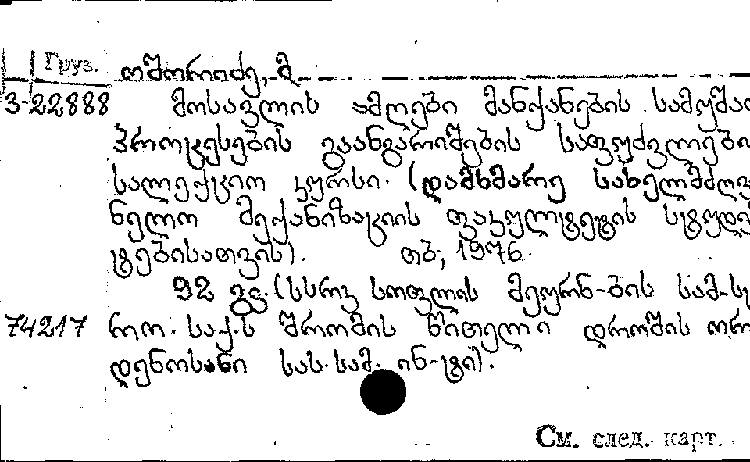 Груз. ოშორიძე, მ.
3-22888 მოსავლის ამღები მანქანების სამუშაო
პროცესების გაანგარიშების საფუძვლები
სალექციო კურსი. (დამხმარე სახელმძღვა
ნელო მექანიზაციის ფაკულტეტის სტუდე
ტებისათვის). თბ., 1976.
92 გვ. (სსრკ სოფლის მეურნ-ბის სამ-ს
74217 რო. საქ.ს შრომის წითელი დროშის ორ
დენოსანი სას. სამ. ინ-ტი).
См. след. карт.